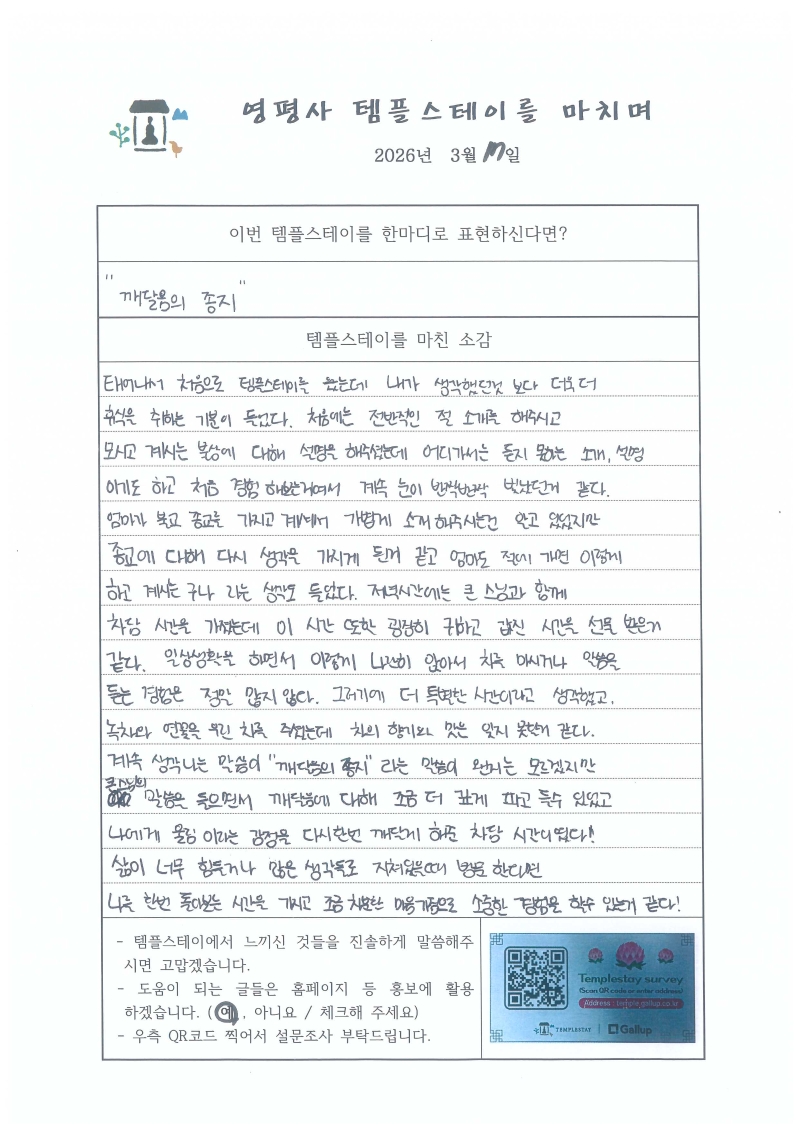 영평사 템플스테이를 마치며
2026년 3월 17일
이번 템플스테이를 한마디로 표현하신다면?
"깨달음의 종지"
템플스테이를 마친 소감
태어나서 처음으로 템플스테이를 왔는데 내가 생각했던것 보다 더욱더
휴식을 취하는 기분이 들었다. 처음에는 전반적인 절 소개를 해주시고
모시고 계시는 불상에 대해 설명을 해주셨는데 어디가서는 듣지 못하는 소개, 설명
이기도 하고 처음 경험 해보는거여서 계속 눈이 반짝반짝 빛났던거 같다.
엄마가 불교 종교를 가지고 계셔서 가볍게 소개 해주시는건 알고 있었지만
종교에 대해 다시 생각을 가지게 된거 같고 엄마도 절에 가면 이렇게
하고 계시는 구나 라는 생각도 들었다. 저녁시간에는 큰 스님과 함께
차담 시간을 가졌는데 이 시간 또한 굉장히 귀하고 값진 시간을 선물 받은거
같다. 일상생활을 하면서 이렇게 나란히 앉아서 차를 마시거나 말씀을
듣는 경험은 정말 많지 않다. 그러기에 더 특별한 시간이라고 생각했고,
녹차와 연꽃을 우린 차를 주셨는데 차의 향기와 맛은 잊지 못할거 같다.
계속 생각나는 말씀이 "깨달음의 종지" 라는 말씀이 왠지는 모르겠지만
큰스님의 말씀을 들으면서 깨달음에 대해 조금 더 깊게 파고 들수 있었고
나에게 울림 이라는 감정을 다시한번 깨닫게 해준 차담 시간이였다!
삶이 너무 힘들거나 많은 생각들로 지쳐있을때 방문 한다면
나를 한번 돌아보는 시간을 가지고 조금 차분한 마음가짐으로 소중한 경험을 할수 있는거 같다!
- 템플스테이에서 느끼신 것들을 진솔하게 말씀해주
시면 고맙겠습니다.
- 도움이 되는 글들은 홈페이지 등 홍보에 활용
하겠습니다. (예, 아니요 / 체크해 주세요)
- 우측 QR코드 찍어서 설문조사 부탁드립니다.
Templestay survey
(Scan QR code or enter address)
Address : temple.gallup.co.kr
TEMPLESTAY | Gallup